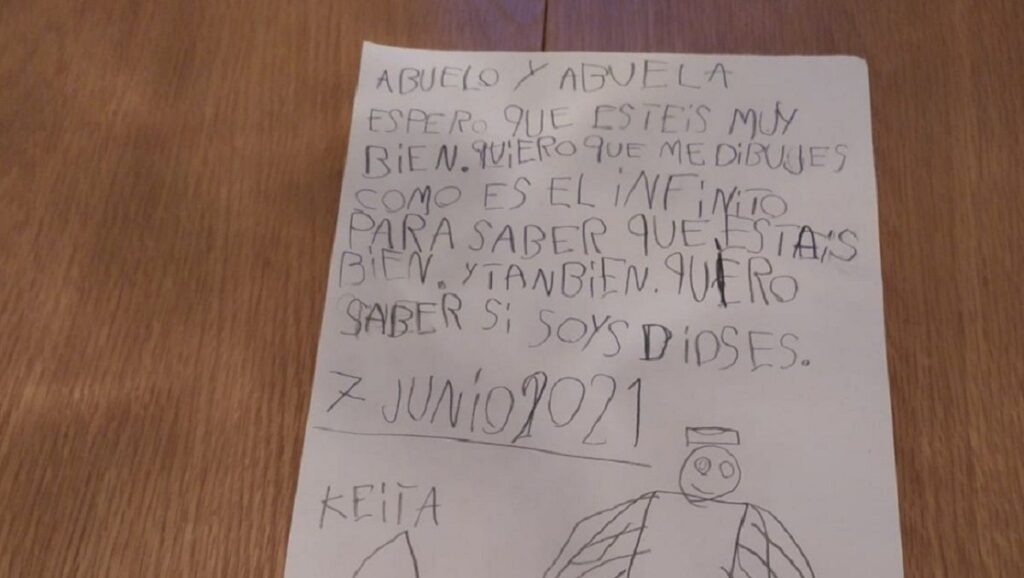 ABUELO Y ABUELA
ESPERO QUE ESTEiS MUY
BiEN. QUiERO QUE ME DiBUJES
COMO ES EL iNFiNiTO
PARA SABER QUE ESTAiS
BiEN. Y TANBiEN. QUiERO
SABER Si SOYS DiOSES.
7 JUNiO 2021
KEiTA